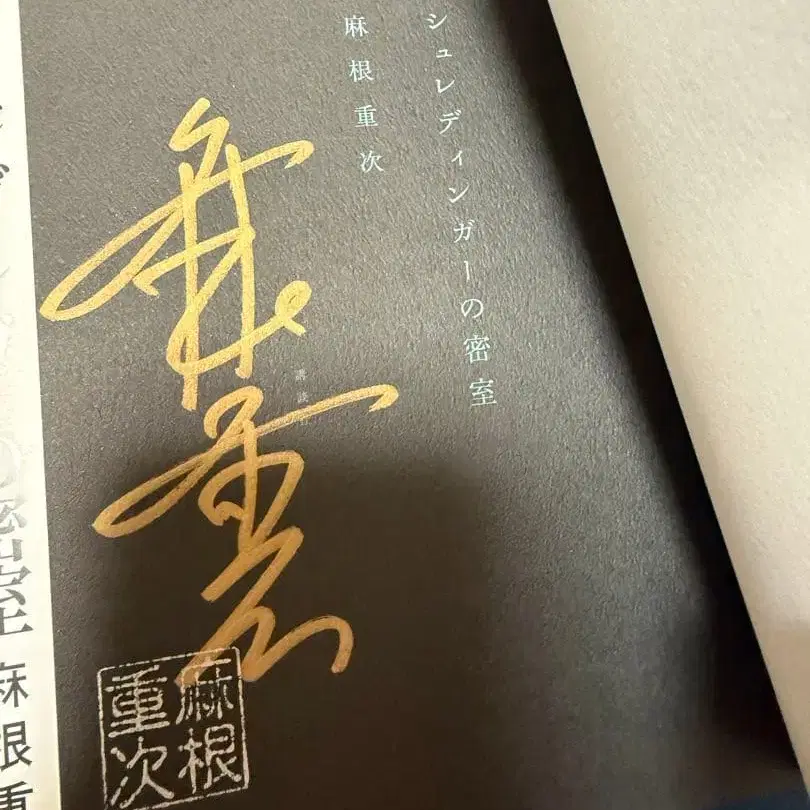 シュレディンガーの密室
麻根重次
講談社
麻根
重次
の密室 麻根重